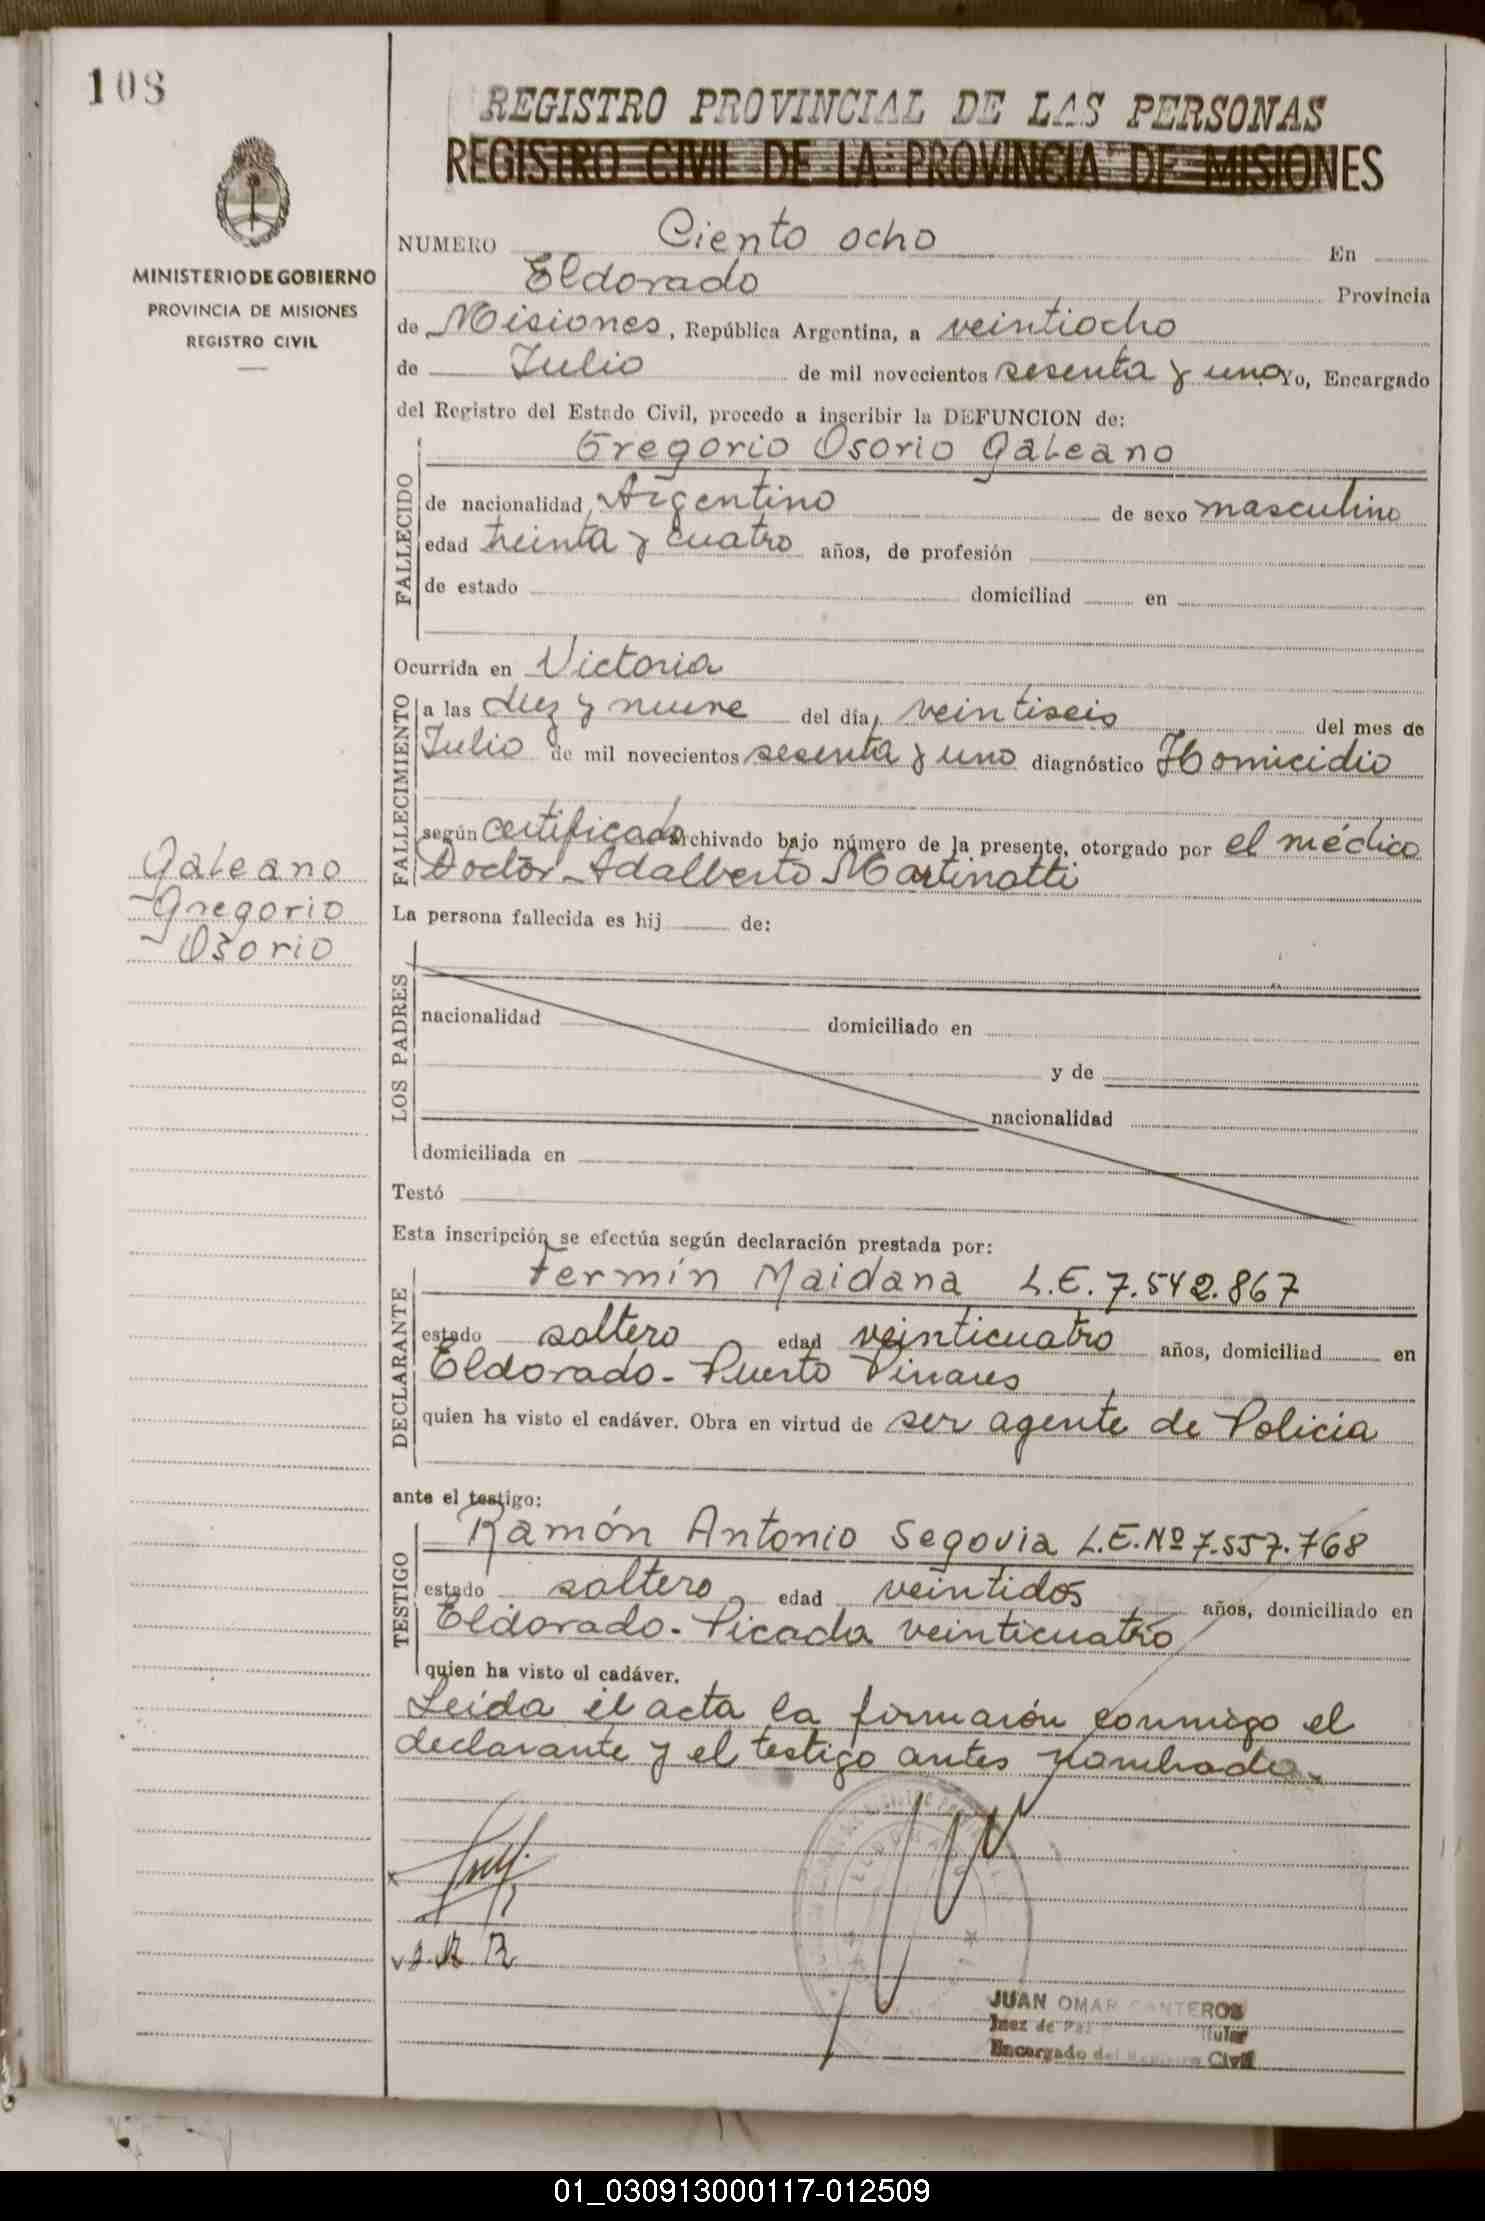 108
REGISTRO PROVINCIAL DE LAS PERSONAS
REGISTRO CIVIL DE LA PROVINCIA DE MISIONES
MINISTERIO DE GOBIERNO
PROVINCIA DE MISIONES
REGISTRO CIVIL
NUMERO Ciento ocho En
Eldorado Provincia
de Misiones, República Argentina, a veintiocho
de Julio de mil novecientos sesenta y uno Yo, Encargado
del Registro del Estado Civil, procedo a inscribir la DEFUNCION de:
FALLECIDO
Gregorio Osorio Galeano
de nacionalidad Argentino de sexo masculino
edad treinta y cuatro años, de profesión
de estado domiciliad en
Ocurrida en Victoria
FALLECIMIENTO
a las diez y nueve del día, veintiseis del mes de
Julio de mil novecientos sesenta y uno diagnóstico Homicidio
según certificado archivado bajo número de la presente, otorgado por el médico
Doctor Adalberto Martinotti
Galeano
Gregorio
Osorio
La persona fallecida es hij de:
LOS PADRES
nacionalidad domiciliado en
y de
nacionalidad
domiciliada en
Testó
Esta inscripción se efectúa según declaración prestada por:
DECLARANTE
Fermín Maidana L.E. 7.542.867
estado soltero edad veinticuatro años, domiciliad en
Eldorado - Puerto Pinares
quien ha visto el cadáver. Obra en virtud de ser agente de Policia
ante el testigo:
TESTIGO
Ramón Antonio Segovia L.E.Nº 7.557.768
estado soltero edad veintidos años, domiciliado en
Eldorado - Picada veinticuatro
quien ha visto el cadáver.
Leida el acta la firmarón conmigo el
declarante y el testigo antes nombrado.
JUAN OMAR CANTEROS
Juez de Paz Titular
Encargado del Registro Civil
01_030913000117-012509